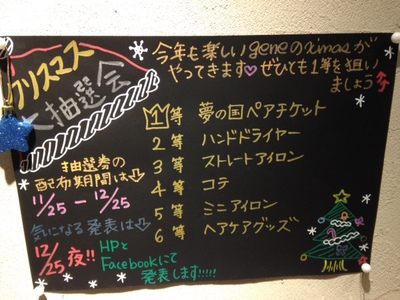 クリスマス
大抽選会
今年も楽しいgeneのximasが
やってきます♡ぜひても1等を狙い
ましょう
1等 夢の国ペアチケット
2等 ハンドドライヤー
3等 ストレートアイロン
4等 コテ
5等 ミニアイロン
6等 ヘアケアグッズ
抽選券の
配布期間は⇩
11/25 ー 12/25
気になる発表は⇩
12/25 夜!! HPと
Facebookにて
発表します!!!!!